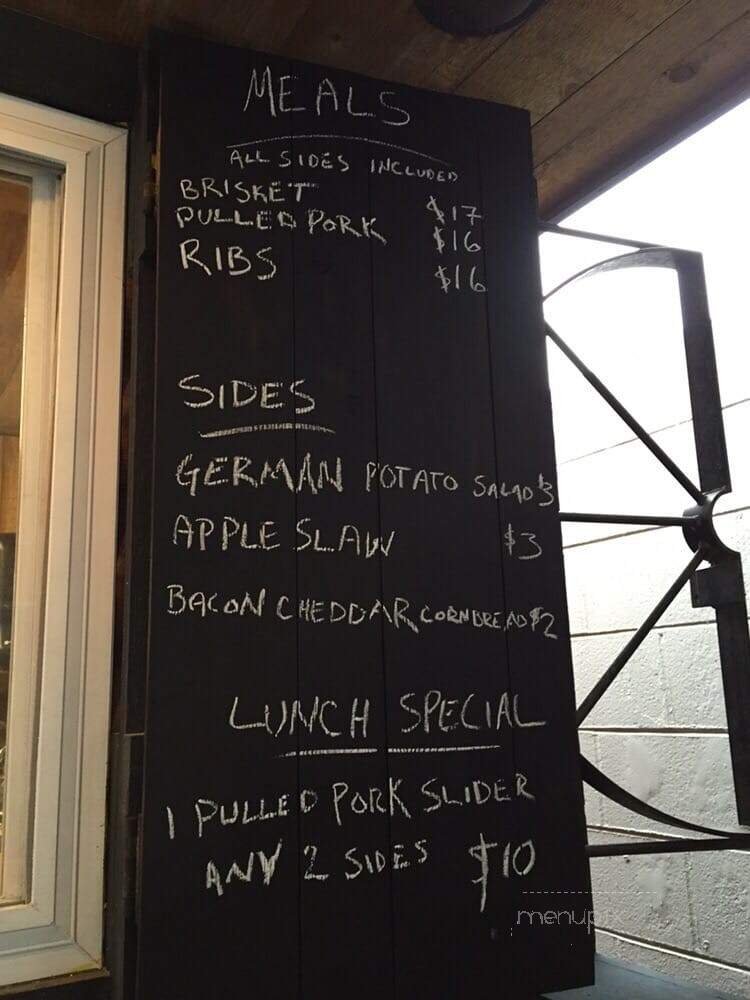 MEALS
ALL SIDES INCLUDED
BRISKET $17
PULLED PORK $16
RIBS $16
SIDES
GERMAN POTATO SALAD $3
APPLE SLAW $3
BACON CHEDDAR CORNBREAD $2
LUNCH SPECIAL
1 PULLED PORK SLIDER
ANY 2 SIDES $10
menupix